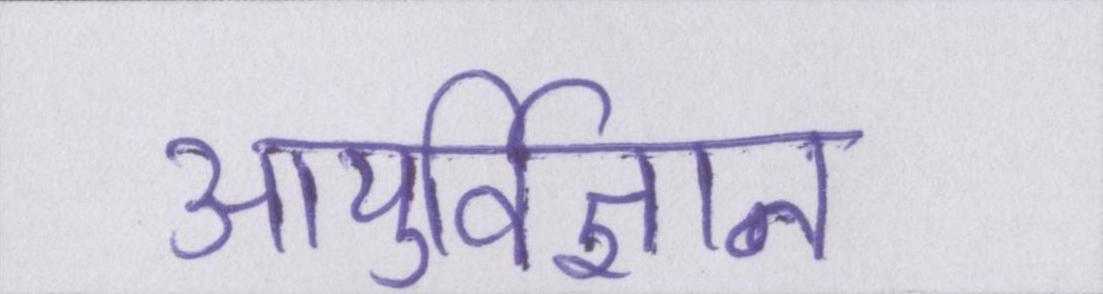 आयुर्विज्ञान